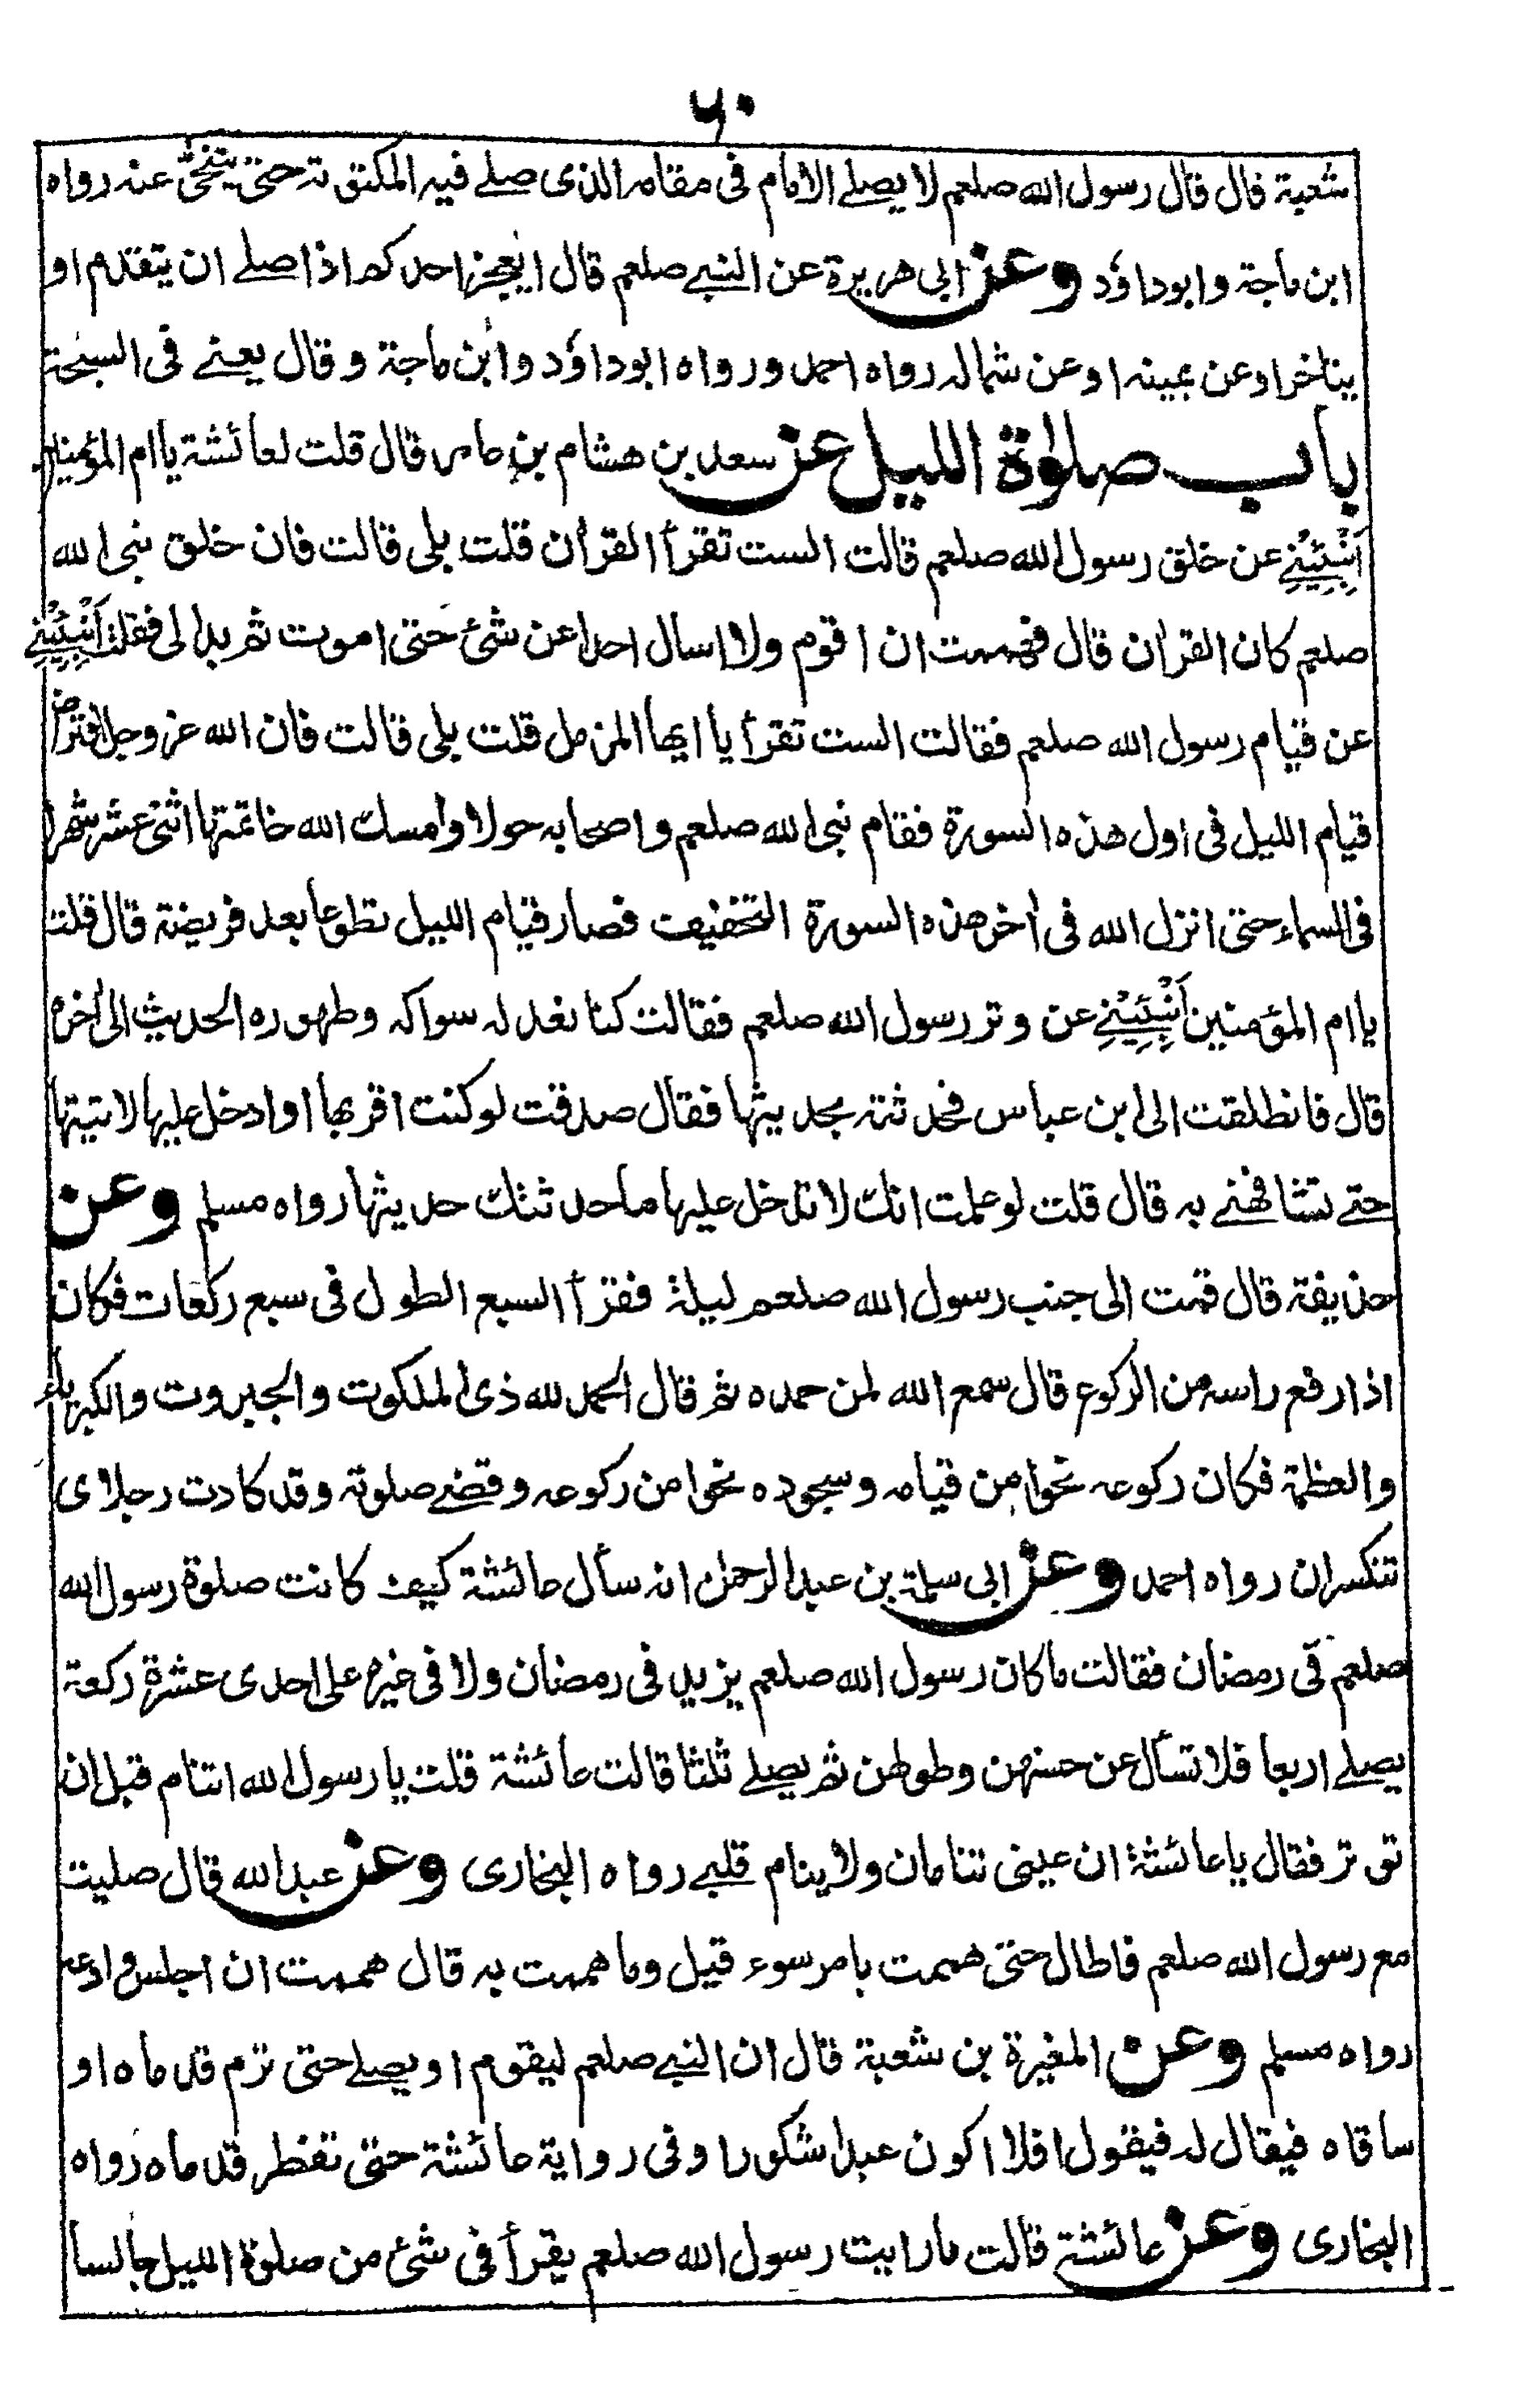 ۶۰
شعبة قال قال رسول الله صلعم لا يصلے الامام فى مقامه الذى صلے فيه المكتوبة حتى يتنحّى عنه رواه
ابن ماجة وابوداؤد وعن ابى هريرة عن النبے صلعم قال ايعجز احدكم اذا صلے ان يتقدم او
يتاخر او عن يمينه او عن شماله رواه احمد ورواه ابوداؤد وابن ماجة وقال يعنے فى السبحة
باب صلوٰة الليل عن سعد بن هشام بن عامر قال قلت لعائشة يا ام المؤمنين
اَنْبِئِيْنِے عن خلق رسول الله صلعم قالت الست تقرأ القرأن قلت بلى قالت فان خلق نبى الله
صلعم كان القرأن قال فهممت ان اقوم ولا اسال احدا عن شئ حتى اموت ثم بدا لى فقلت اَنْبِئِيْنِے
عن قيام رسول الله صلعم فقالت الست تقرأ يا ايها المزمل قلت بلى قالت فان الله عز وجل افترض
قيام الليل فى اول هذه السورة فقام نبى الله صلعم واصحابه حولا وامسك الله خاتمتها اثنى عشر شهرا
فى السماء حتى انزل الله فى أخر هذه السورة التخفيف فصار قيام الليل تطوعا بعد فريضة قال قلت
يا ام المؤمنين اَنْبِئِيْنِے عن وتر رسول الله صلعم فقالت كنا نعد له سواكه وطهوره الحديث الى أخره
قال فانطلقت الى ابن عباس فحدثته بحديثها فقال صدقت لو كنت اقربها او ادخل عليها لاتيتها
حتے تشافهنے به قال قلت لو علمت انك لا تدخل عليها ما حدثتك حديثها رواه مسلم وعن
حذيفة قال قمت الى جنب رسول الله صلعم ليلة فقرأ السبع الطول فى سبع ركعات فكان
اذا رفع راسه من الركوع قال سمع الله لمن حمده ثم قال الحمد لله ذى الملكوت والجبروت والكبرياء
والعظمة فكان ركوعه نحوا من قيامه وسجوده نحوا من ركوعه وقضے صلوته وقد كادت رجلاى
تنكسران رواه احمد وعن ابى سلمة بن عبد الرحمٰن انه سأل عائشة كيف كانت صلوة رسول الله
صلعم فى رمضان فقالت ما كان رسول الله صلعم يزيد فى رمضان ولا فى غيره على احدى عشرة ركعة
يصلے اربعا فلا تسأل عن حسنهن وطولهن ثم يصلے ثلثا قالت عائشة قلت يا رسول الله اتنام قبل ان
توتر فقال يا عائشة ان عينى تنامان ولا ينام قلبے رواه البخارى وعن عبد الله قال صليت
مع رسول الله صلعم فاطال حتى هممت بامر سوء قيل وما هممت به قال هممت ان اجلس وادعه
رواه مسلم وعن المغيرة بن شعبة قال ان النبے صلعم ليقوم او يصلے حتى ترم قدماه او
ساقاه فيقال له فيقول افلا اكون عبدا شكورا وفى رواية عائشة حتى تفطر قدماه رواه
البخارى وعن عائشة قالت ما رايت رسول الله صلعم يقرأ فى شئ من صلوة الليل جالسا